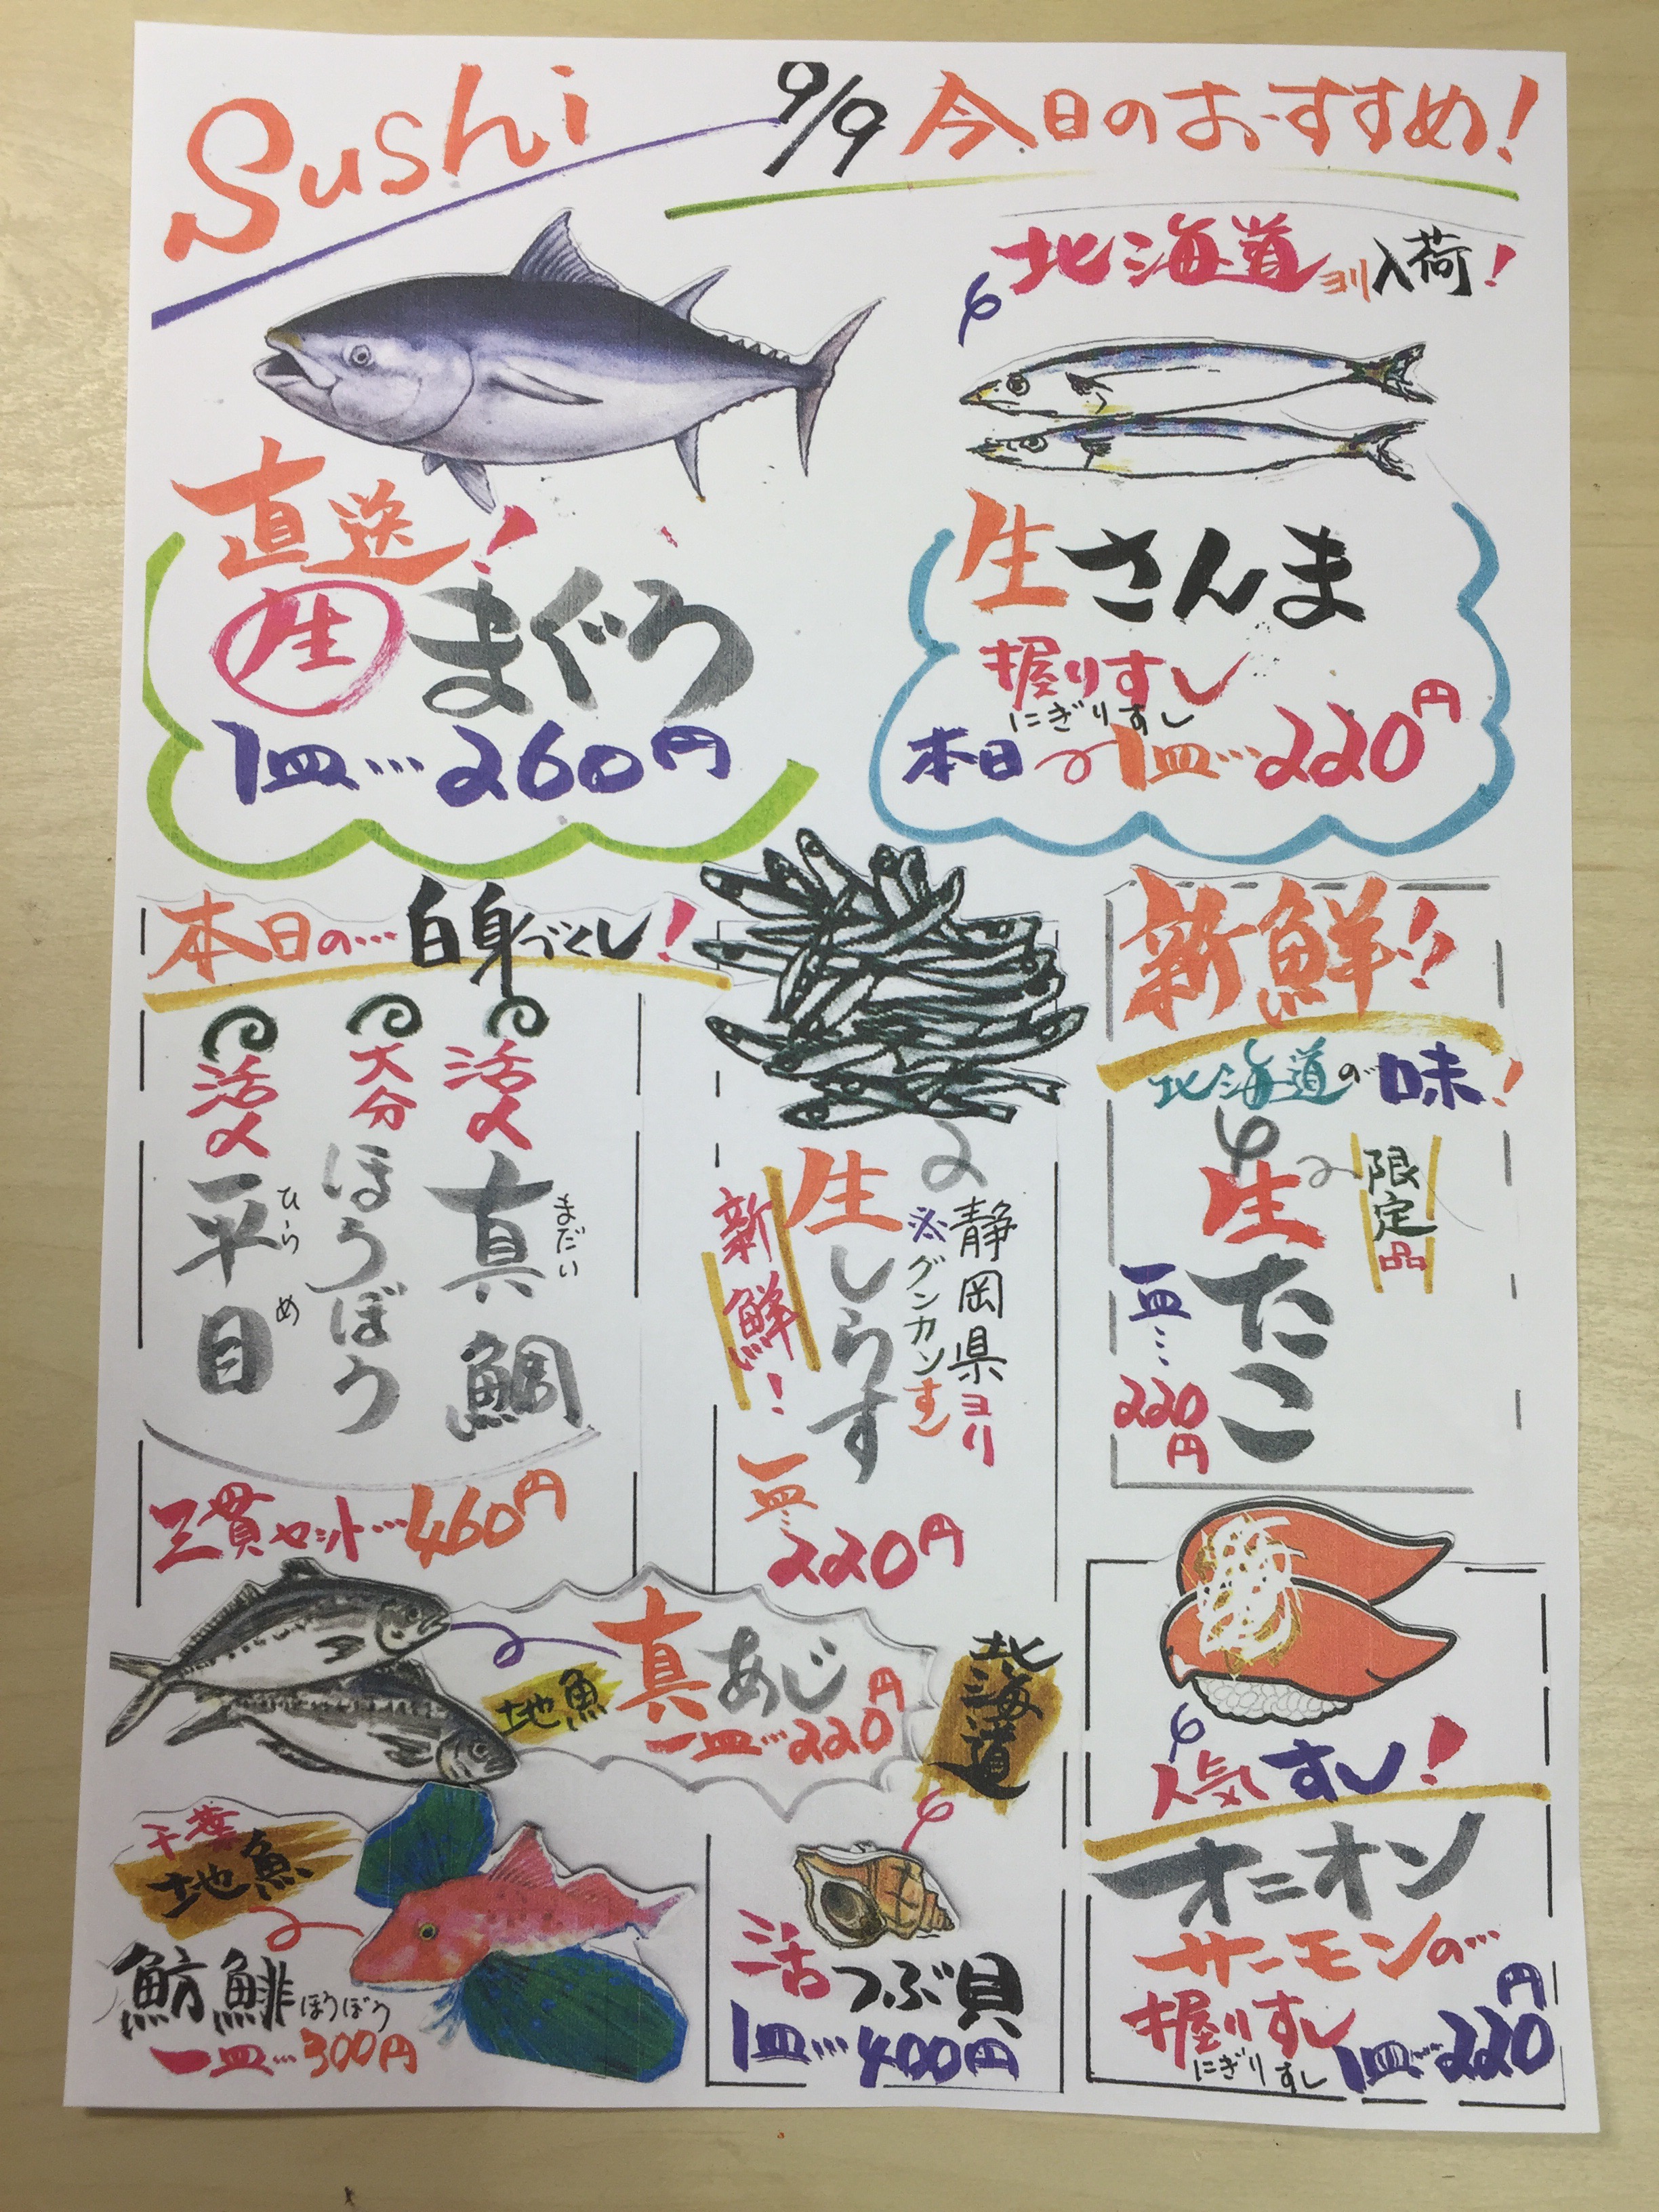 Sushi
9/9 今日のおすすめ!
北海道ヨリ入荷!
直送!
生まぐろ
1皿…260円
生さんま
握りすし
にぎりすし
本日 1皿…220円
本日の…白身づくし!
活〆 真鯛
まだい
大分 ほうぼう
活〆 平目
ひらめ
三貫セット…460円
静岡県ヨリ
グンカンすし
生しらす
新鮮!
一皿…220円
新鮮!!
北海道の味!
限定品
生たこ
一皿…220円
地魚
真あじ
一皿…220円
北海道
活つぶ貝
1皿…400円
千葉
地魚
魴鯡 ほうぼう
一皿…300円
人気すし!
オニオン
サーモンの…
握りすし
にぎりすし
1皿…220円